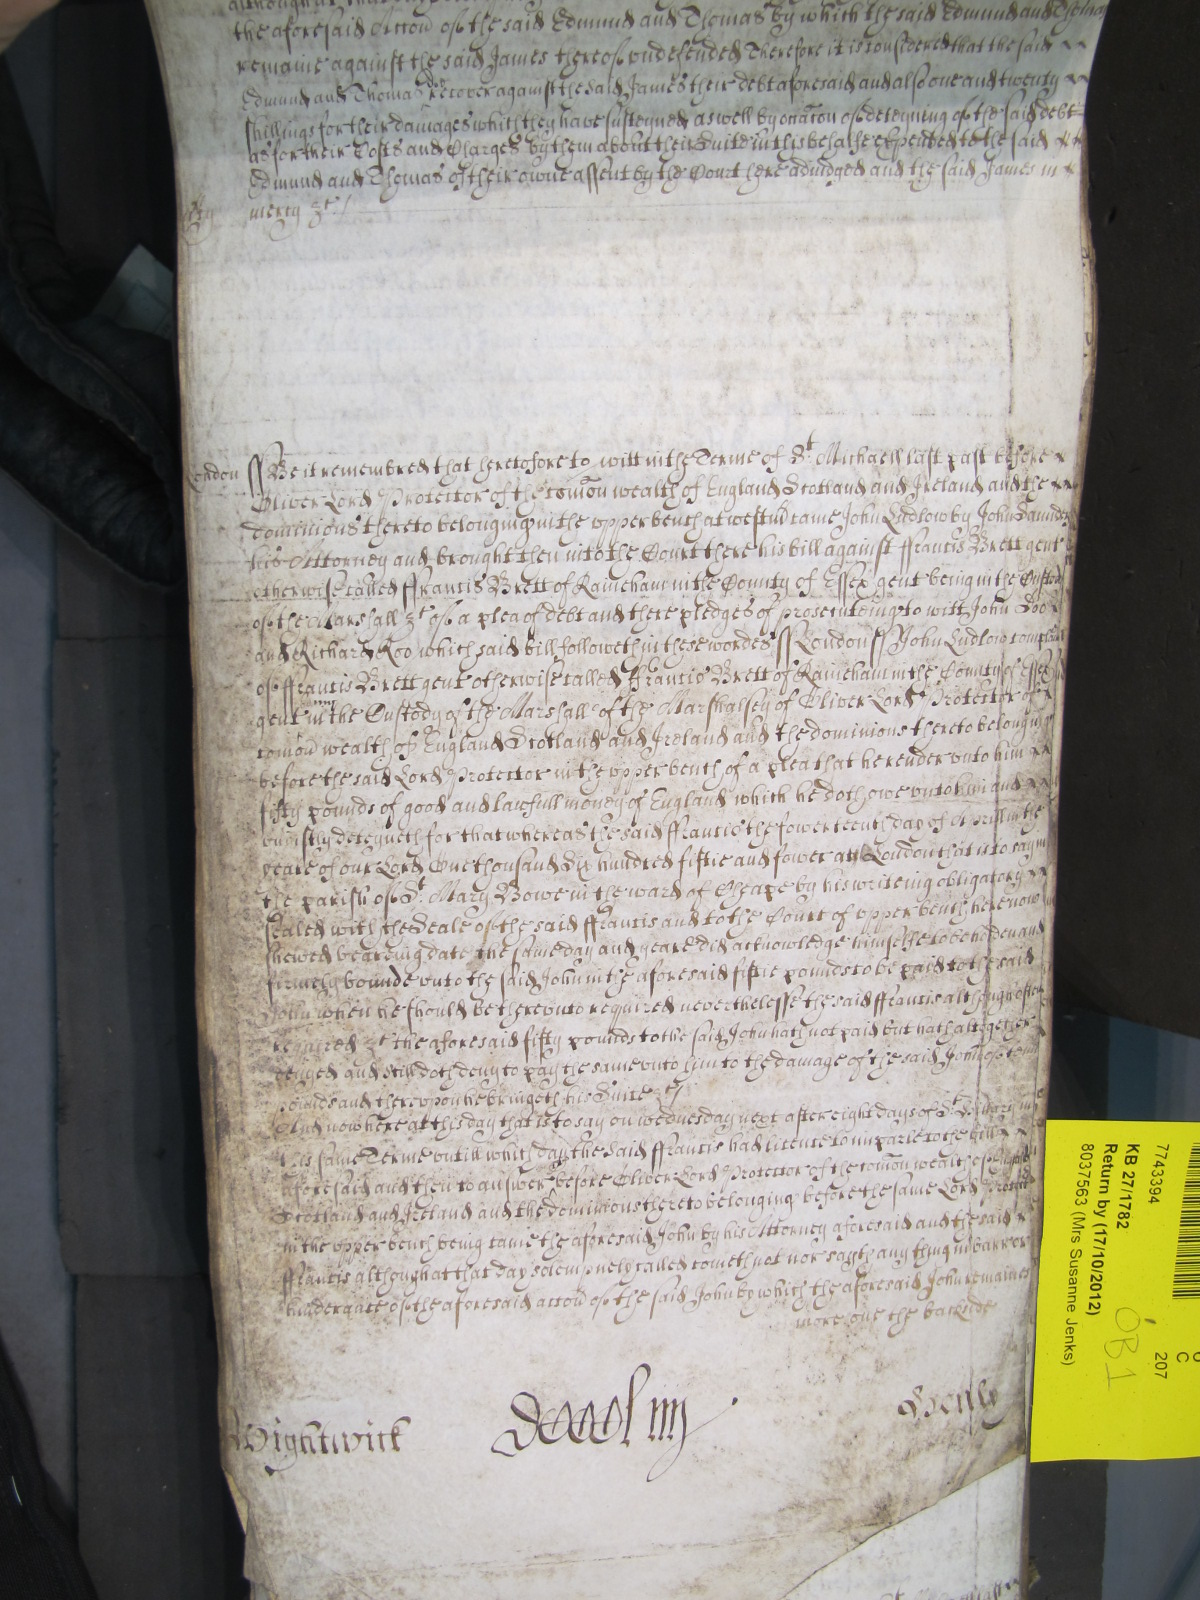 the aforesaid Accon of the said Edmund and Thomas by which the said Edmund and Thomas
remaine against the said James thereof undefended Therefore it is considered that the said
Edmund and Thomas recover against the said James their debt aforesaid and also one and twenty
shillings for their damages which they have susteyned aswell by occacon of deteyning of the said debt
as for their Costs and Charges by them about their Suite in this behalfe expended to the said
Edmund and Thomas of their owne assent by the Court here adiudged and the said James in
mercy &c /
London ss Be it remembred that heretofore to witt in the Terme of St. Michaell last past before
Oliver Lord Protector of the Comon wealth of England Scotland and Ireland and the
dominions thereto belonging in the upper bench at westm came John Ludlow by John
his Attorney and brought then into the Court there his bill against ffrancis Brett gent
otherwise called ffrancis Brett of Raineham in the County of Essex gent being in the Custody
of the Marshall &c of a plea of debt and there pledges of prosecuteing to witt John Doo
and Richard Roo which said bill followeth in these wordes ss London ss John Ludlow complaines
of ffrancis Brett gent otherwise called ffrancis Brett of Raineham in the County of Essex
gent in the Custody of the Marshall of the Marshalsey of Oliver Lord Protector of
comon wealth of England Scotland and Ireland and the dominions thereto belonging
before the said Lord Protector in the upper bench of a plea that he render unto him
fifty pounds of good and lawfull money of England which he doth owe unto him and
uniustly deteyneth for that whereas the said ffrancis the fowerteenth day of Aprill in the
yeare of our Lord One thousand Six hundred fiftie and fower att London that is to say in
the parish of St. Mary Bowe in the ward of Cheape by his writeing obligatory
sealed with the Seale of the said ffrancis and to the Court of upper bench here now
shewed beareing date the same day and yeare did acknowledge himselfe to be holden and
firmely bounde unto the said John in the aforesaid fiftie pounds to be paid to the said
John when he should be thereunto required neverthelesse the said ffrancis although often
required &c the aforesaid fifty pounds to the said John hath not paid but hath altogether
denyed and still doth deny to pay the same unto him to the damage of the said John of tenn
pounds and thereupon he bringeth his Suite &c /
And now here at this day that is to say on wednesday next after eight days of St. Hillary in
this same Terme untill which day the said ffrancis had licence to imparle to the bill
aforesaid and then to answer before Oliver Lord Protector of the comon wealth of England
Scotland and Ireland and the dominions thereto belonging before the same Lord Protector
in the upper bench being came the aforesaid John by his Attorney aforesaid and the said
ffrancis although at that day solempnely called cometh not nor sayth any thing in barr or
hinderance of the aforesaid accon of the said John by which the aforesaid John remaines
more one the backside
Wightwick
7743394
KB 27/1782
Return by (17/10/2012)
8037563 (Mrs Susanne Jenks)
C
207
OB 1